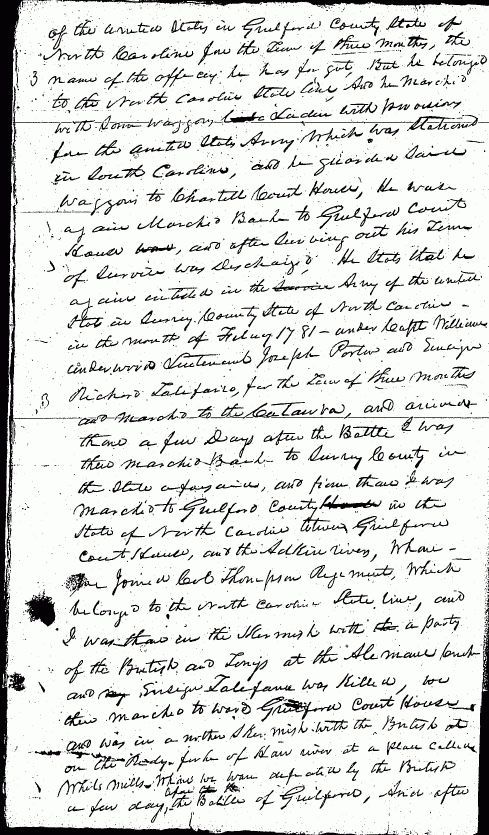 of the united States in Guilford County State of
North Caroline for the Term of three months, the
3 name of the officers he has forgot But he belonged
to the North Caroline State line, And he Marched
with Some waggons Laden with Provisions
for the united States Army Which was Stationed
in South Caroline, and he guarded Said
waggons to Court House, He was
again Marched Back to Guilford Court
House and after Serving out his Term
of Service was Discharged, He Stats that he
again inlisted in the Service Army of the united
Stats in Surry County State of North Caroline -
in the month of Febuay 1781 - under Capt William
underwood Lieutenant Joseph Porter and Ensign
3 Richard Talefaro, for the Term of three months
and marched to the Catawba, and arived
thare a few Days after the Battle I was
then marched Back to Surry County in
the State aforsaid, and from thare I was
marched to Guilford County House in the
State of North Caroline between Guilford
Court House, and the Adkin river, Whare -
we Joined Col Thompson Regement, Which
belonged to the North Caroline State line, and
I was thare in the Skermish with a party
of the British and Torys at the Alemance Creek
and my Ensign Talefaro was Killed, we
then marched toward Guilford Court House
and was in a nother Skermish with the British at
on the fork of Haw river at a place called
Whits Mills, Whare we ware defeated by the British
a few days after the the Battle of Guilford, And after